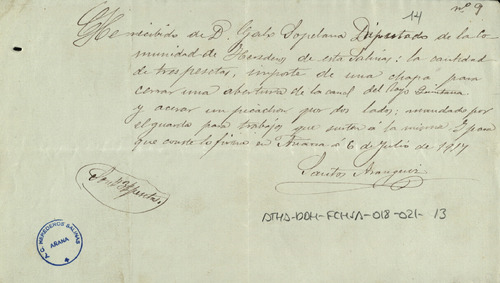 nº 9
14
He recibido de D. Galo Sopelana Diputado de la Co
munidad de Herederos de esta Salinas: la cantidad
de tres pesetas, importe de una chapa para
cerrar una abertura de la canal del Royo Quintana
y acerar un picachon por dos lados; mandado por
el guarda para trabajos que
a la misma Y para
que conste lo firmo en Añana á 6 de Julio de 1917
Santos Aranguiz
Son 3 pesetas
ATHA-DAH-FCHSA-018-021-13
A.G. HEREDEROS SALINAS
AÑANA